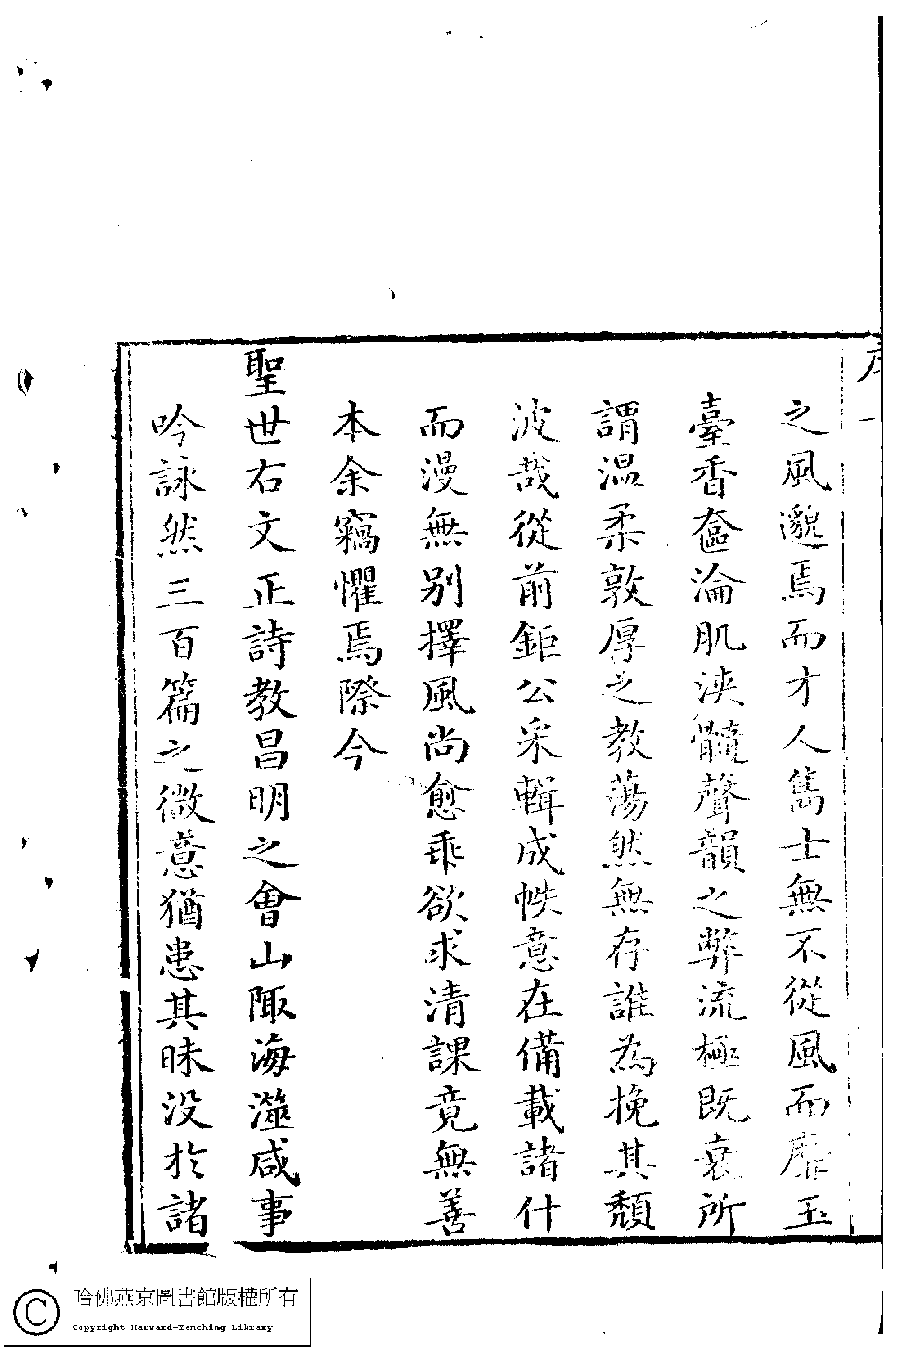 序 一
之風邈焉而才人雋士無不從風而靡玉
臺香奩淪肌浹髓聲韻之弊流極既衰所
謂溫柔敦厚之教蕩然無存誰為挽其頹
波哉從前鉅公采輯成帙意在備載諸什
而漫無別擇風尚愈乖欲求清課竟無善
本余竊懼焉際今
聖世右文正詩教昌明之會山陬海澨咸事
吟詠然三百篇之微意猶患其昧没於諸
哈佛燕京圖書館版權所有
Copyright Harvard-Yenching Library